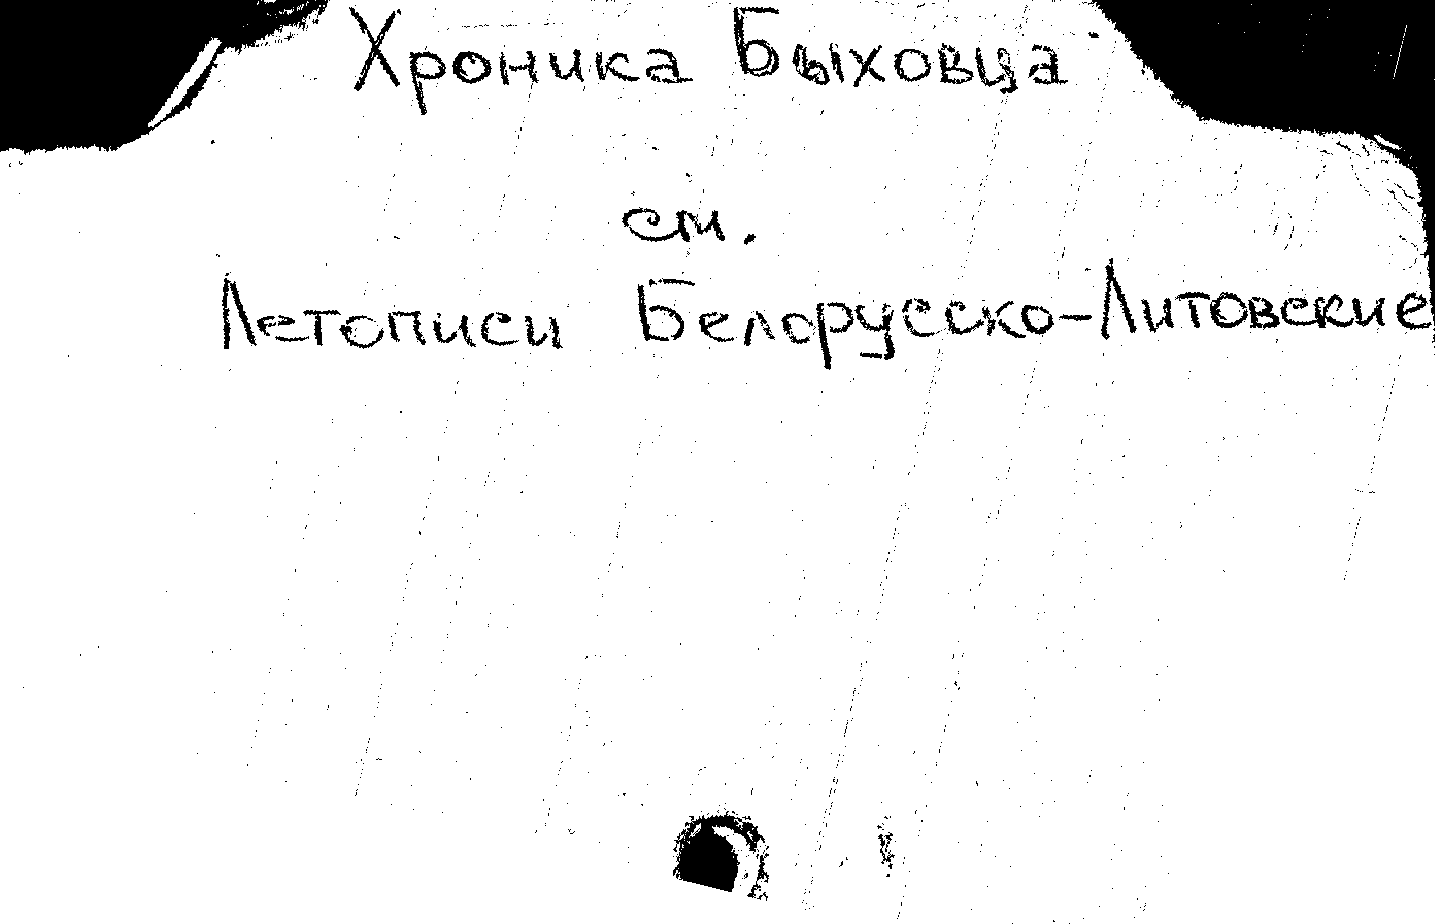 Хроника Быховца
см.
Летописи Белорусско-Литовские